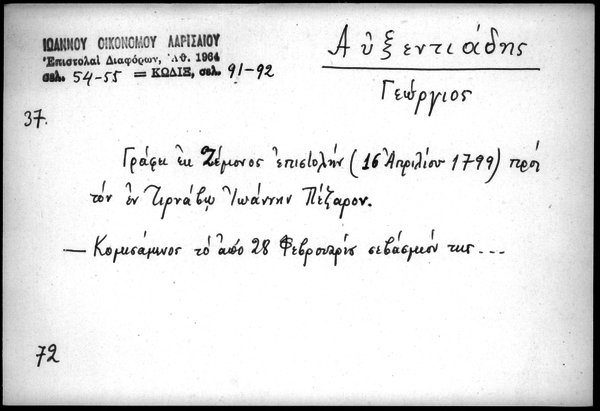 ΙΩΑΝΝΟΥ ΟΙΚΟΝΟΜΟΥ ΛΑΡΙΣΑΙΟΥ
Ἐπιστολαὶ Διαφόρων, Ἀθ. 1964
σελ. 54-55 = ΚΩΔΙΞ, σελ. 91-92
Αὐξεντιάδης
Γεώργιος
37.
Γράφει ἐκ Ζέμονος ἐπιστολήν (16 Ἀπριλίου 1799) πρὸς
τὸν ἐν Τιρνάβῳ Ἰωάννην Πέζαρον.
— Κομισάμενος τὸ ἀπὸ 28 Φεβρουαρίου σεβάσμιόν της ...
72